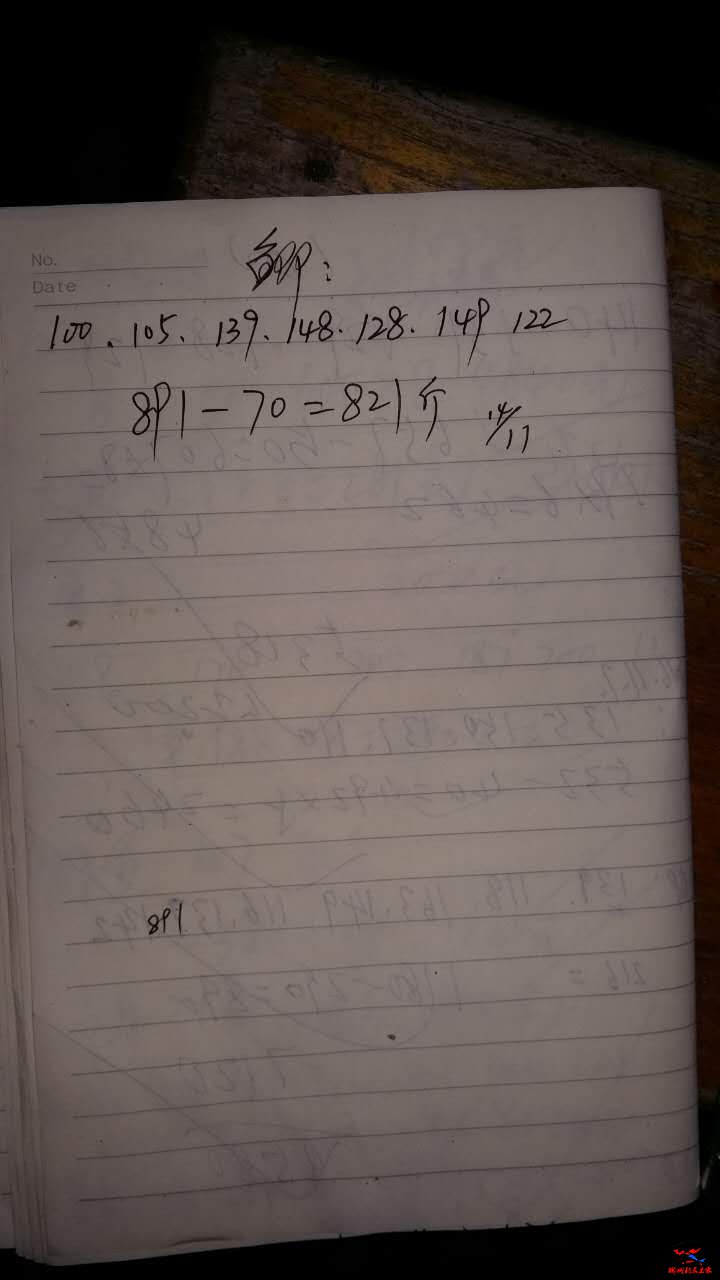 No.
Date
100.105.139.148.128.149 122
891-70=821斤 14/11
891